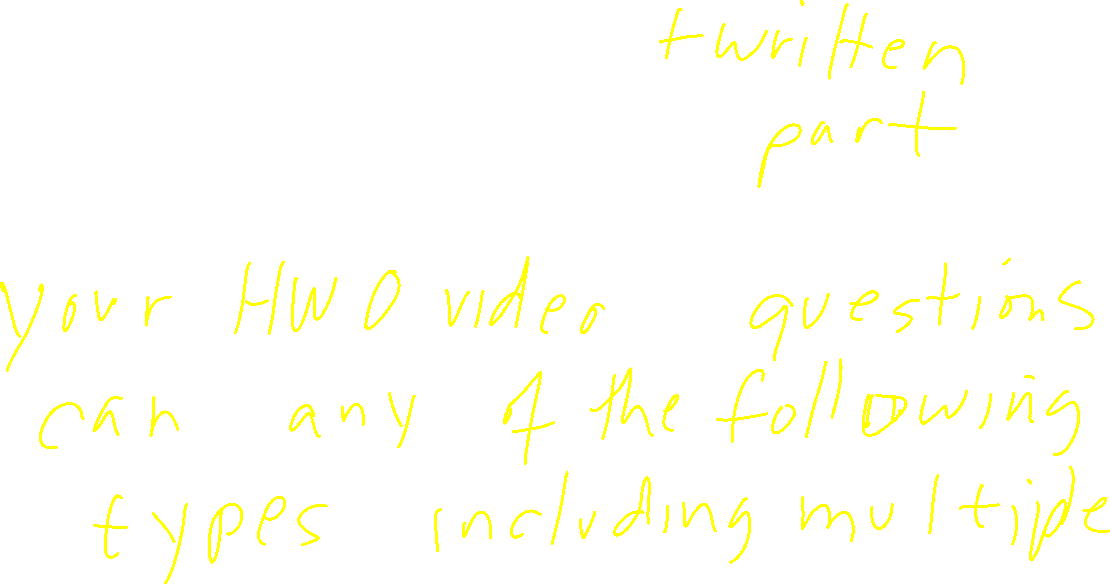 +written
part
your HW0 video questions
can any of the following
types including multiple